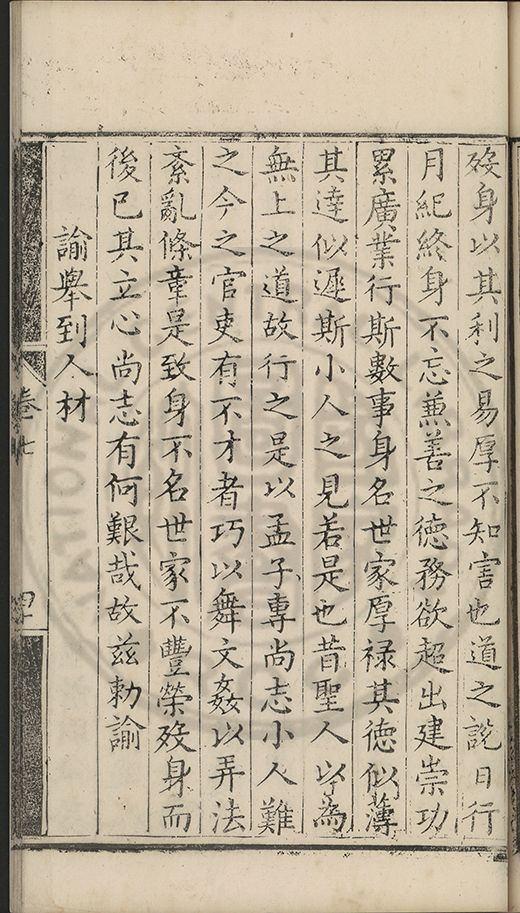 歿身以其利之易厚不知害也道之說日行
月紀終身不忘兼善之德務欲超出建崇功
累廣業行斯數事身名世家厚祿其德似薄
其達似遲斯小人之見若是也昔聖人以為
無上之道故行之是以孟子專尚志小人難
之今之官吏有不才者巧以舞文姦以弄法
紊亂條章是致身不名世家不豐榮歿身而
後已其立心尚志有何艱哉故茲勑諭
諭舉到人材
卷七
四